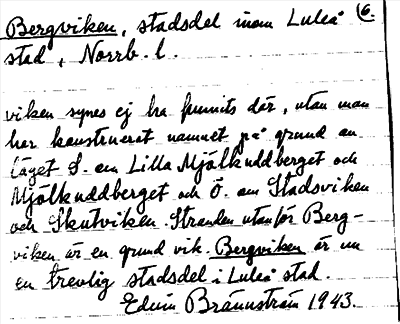 Bergviken, stadsdel inom Luleå 6.
stad, Norrb. l.
viken synes ej ha funnits där, utan man
har konstruerat namnet på grund av
läget S. om Lilla Mjölkuddberget och
Mjölkuddberget och Ö. om Stadsviken
och Skutviken. Stranden utanför Berg-
viken är en grund vik. Bergviken är nu
en trevlig stadsdel i Luleå stad.
Edvin Brännström 1943.